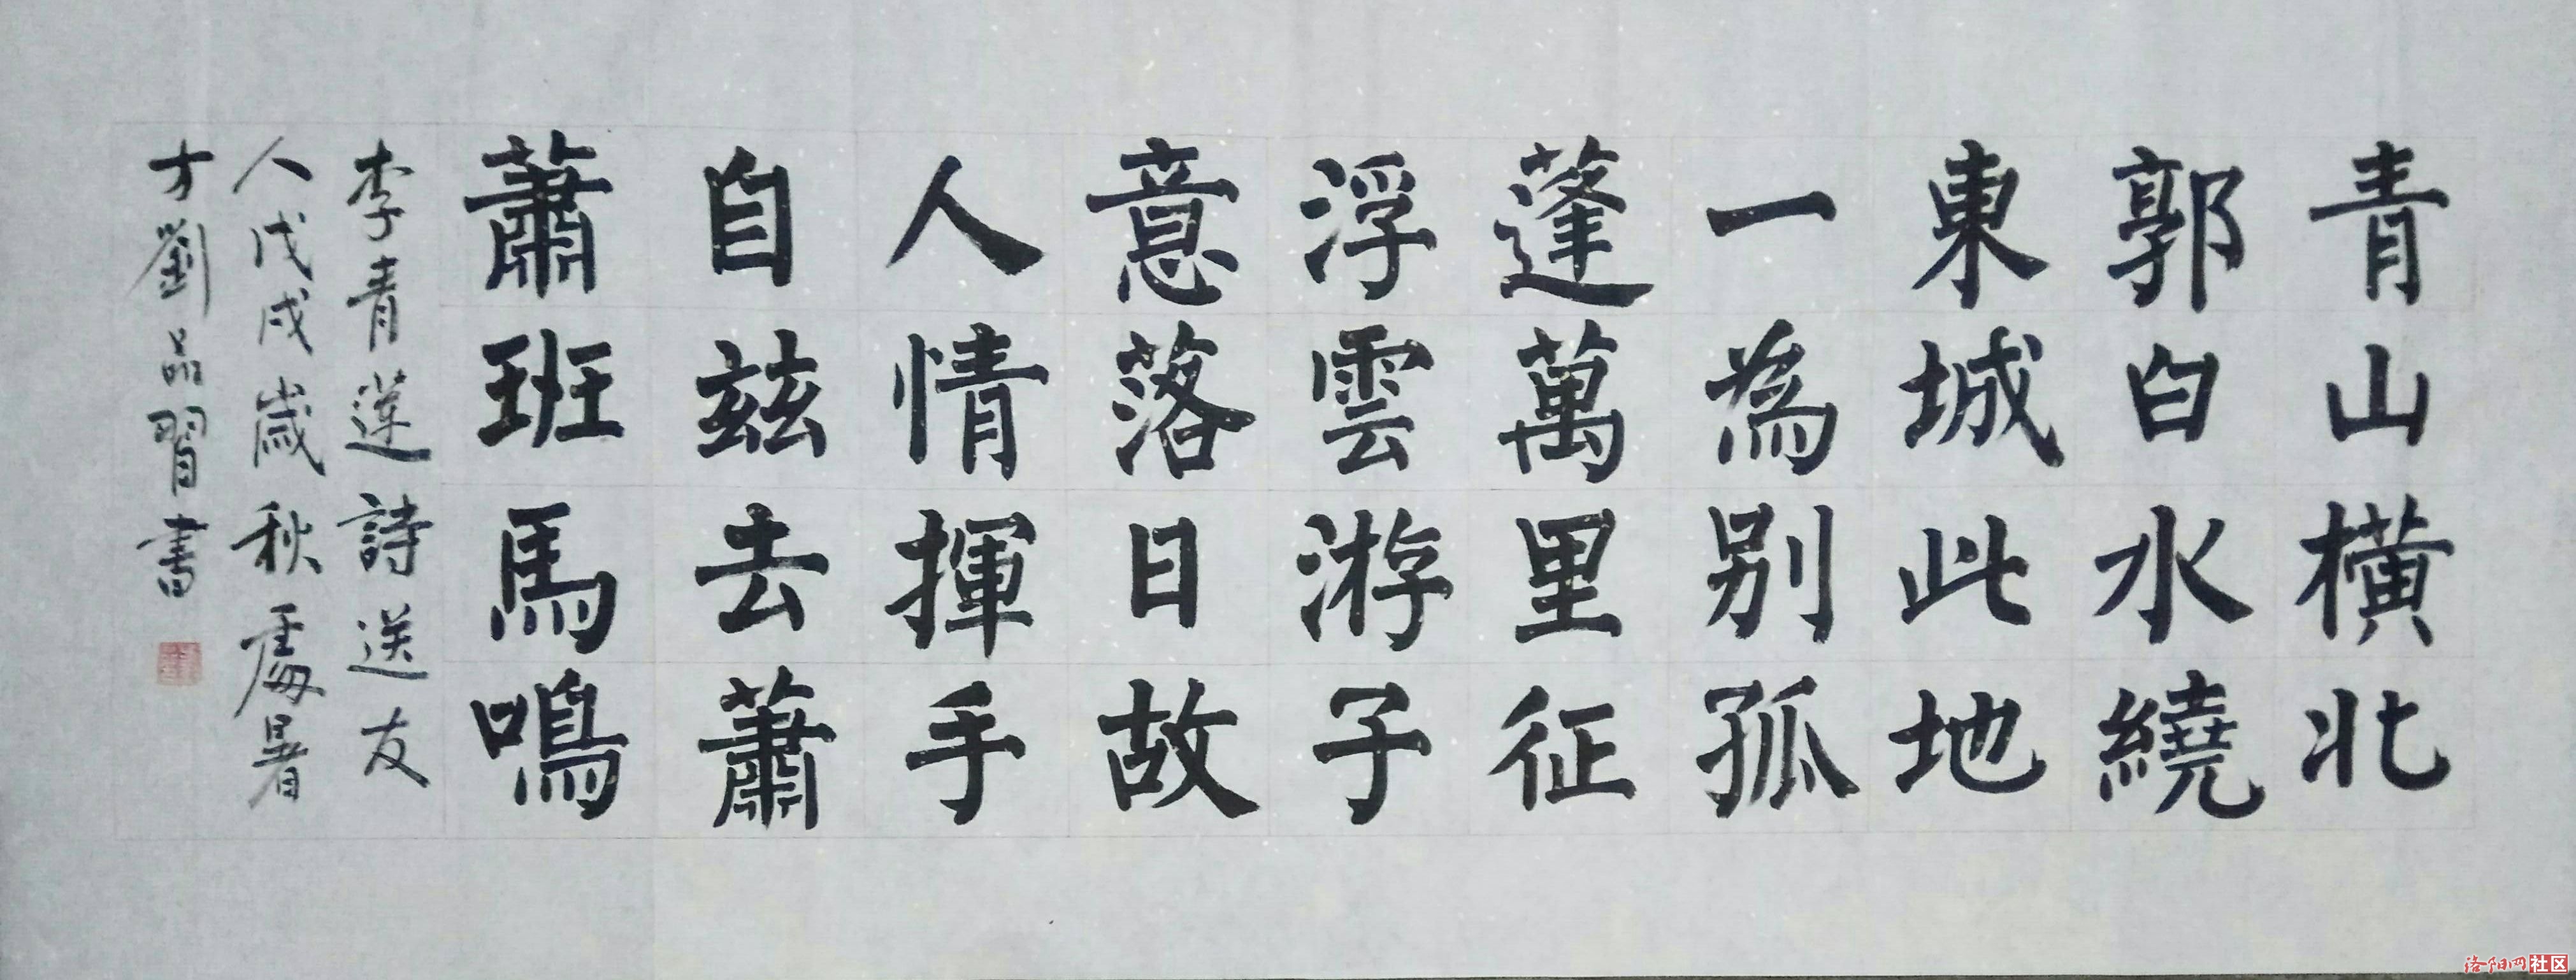 青山橫北
郭白水繞
東城此地
一為別孤
蓬萬里征
浮雲游子
意落日故
人情揮手
自茲去蕭
蕭班馬鳴
李青蓮詩送友
人戊戌歲秋處暑
才劉品習書
洛阳网社区